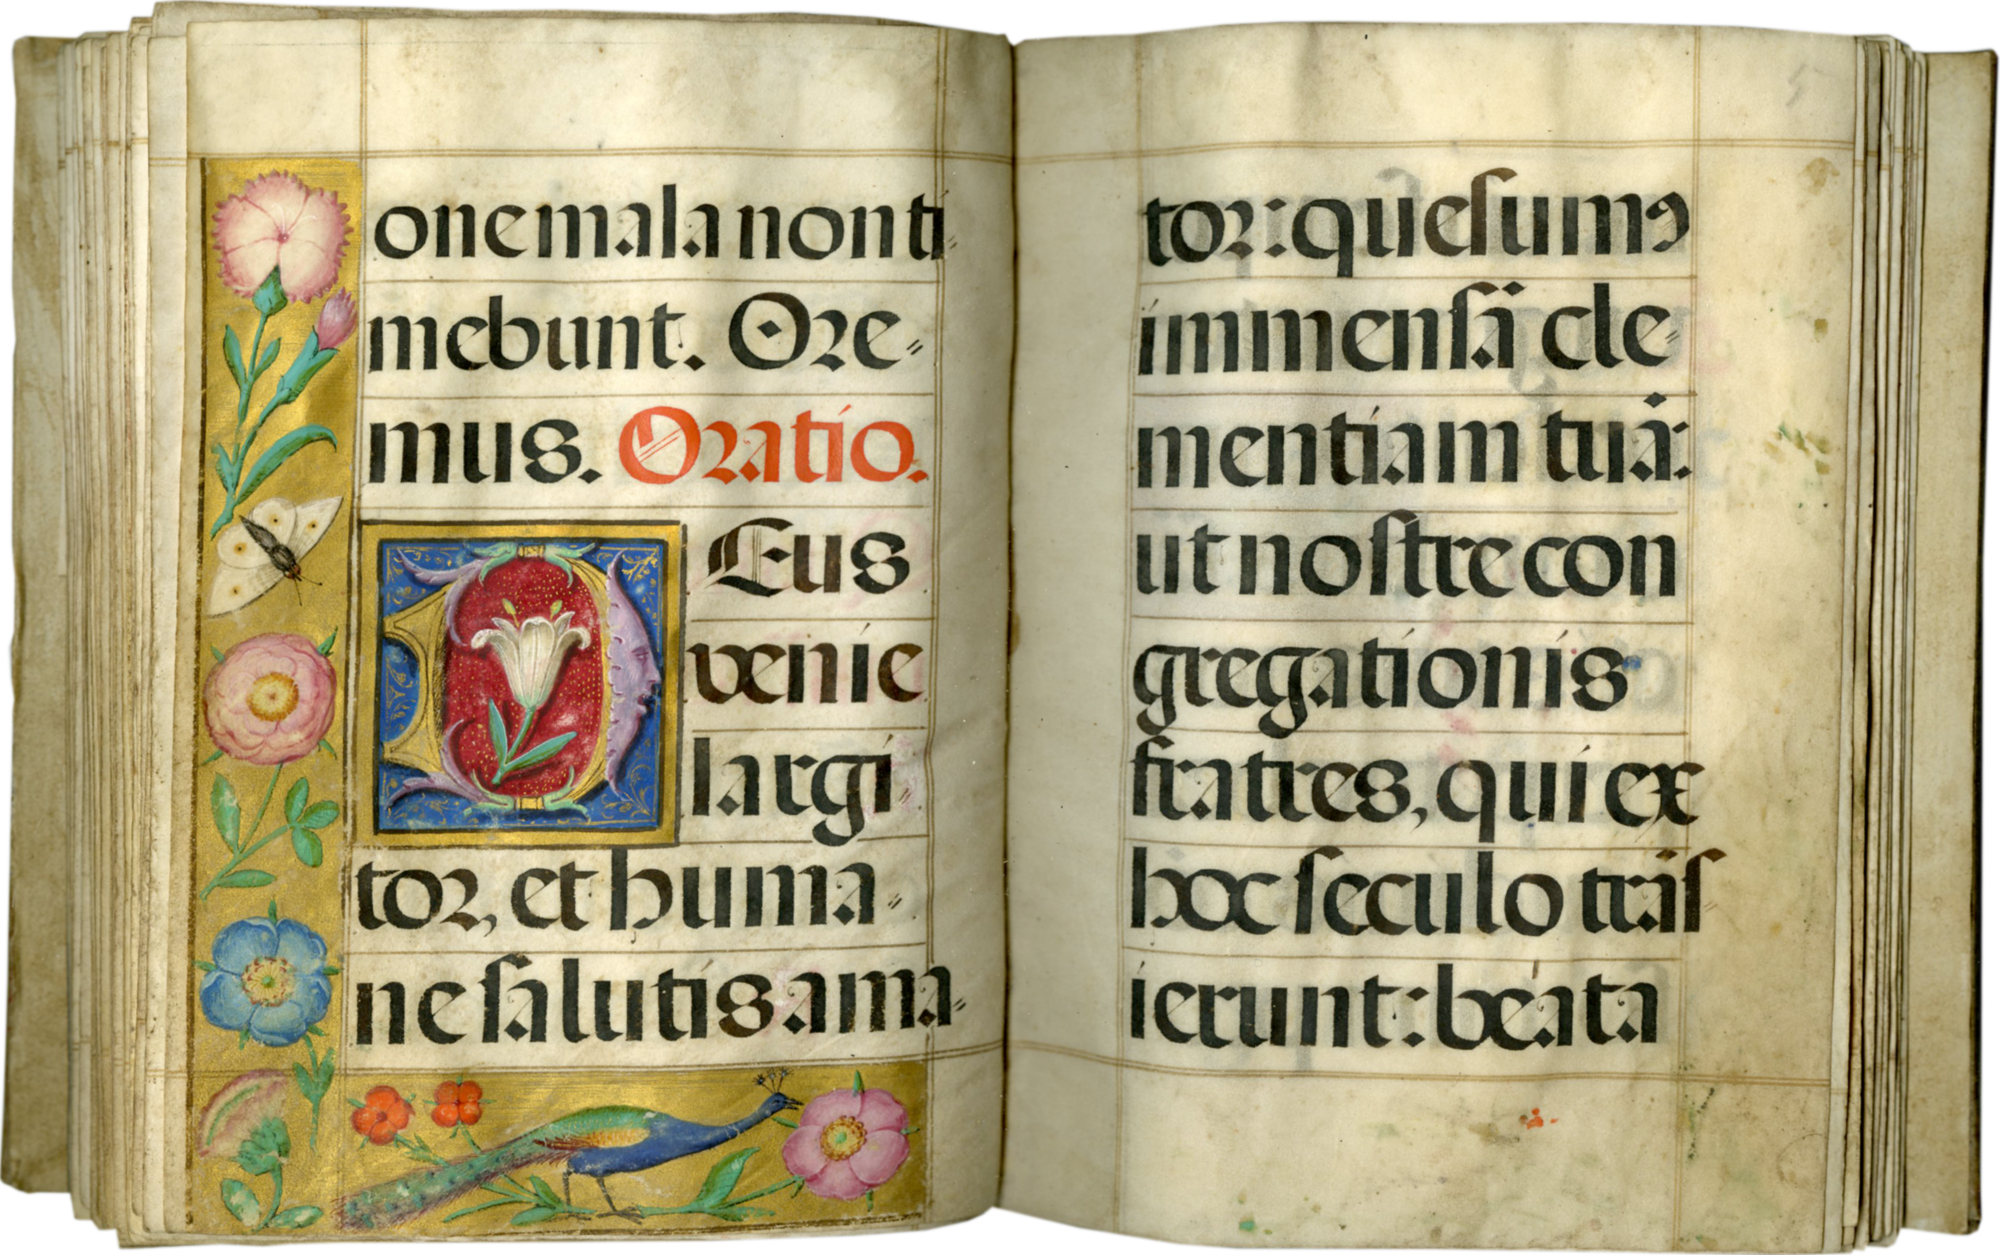 one mala non ti
mebunt. Ore
mus. Oratio.
DEus
venie
largi
tor, et huma
ne salutis ama
tor: quesumꝯ
immensā cle
mentiam tuā:
ut nostre con
gregationis
fratres, qui ex
hoc seculo trās
ierunt: beata